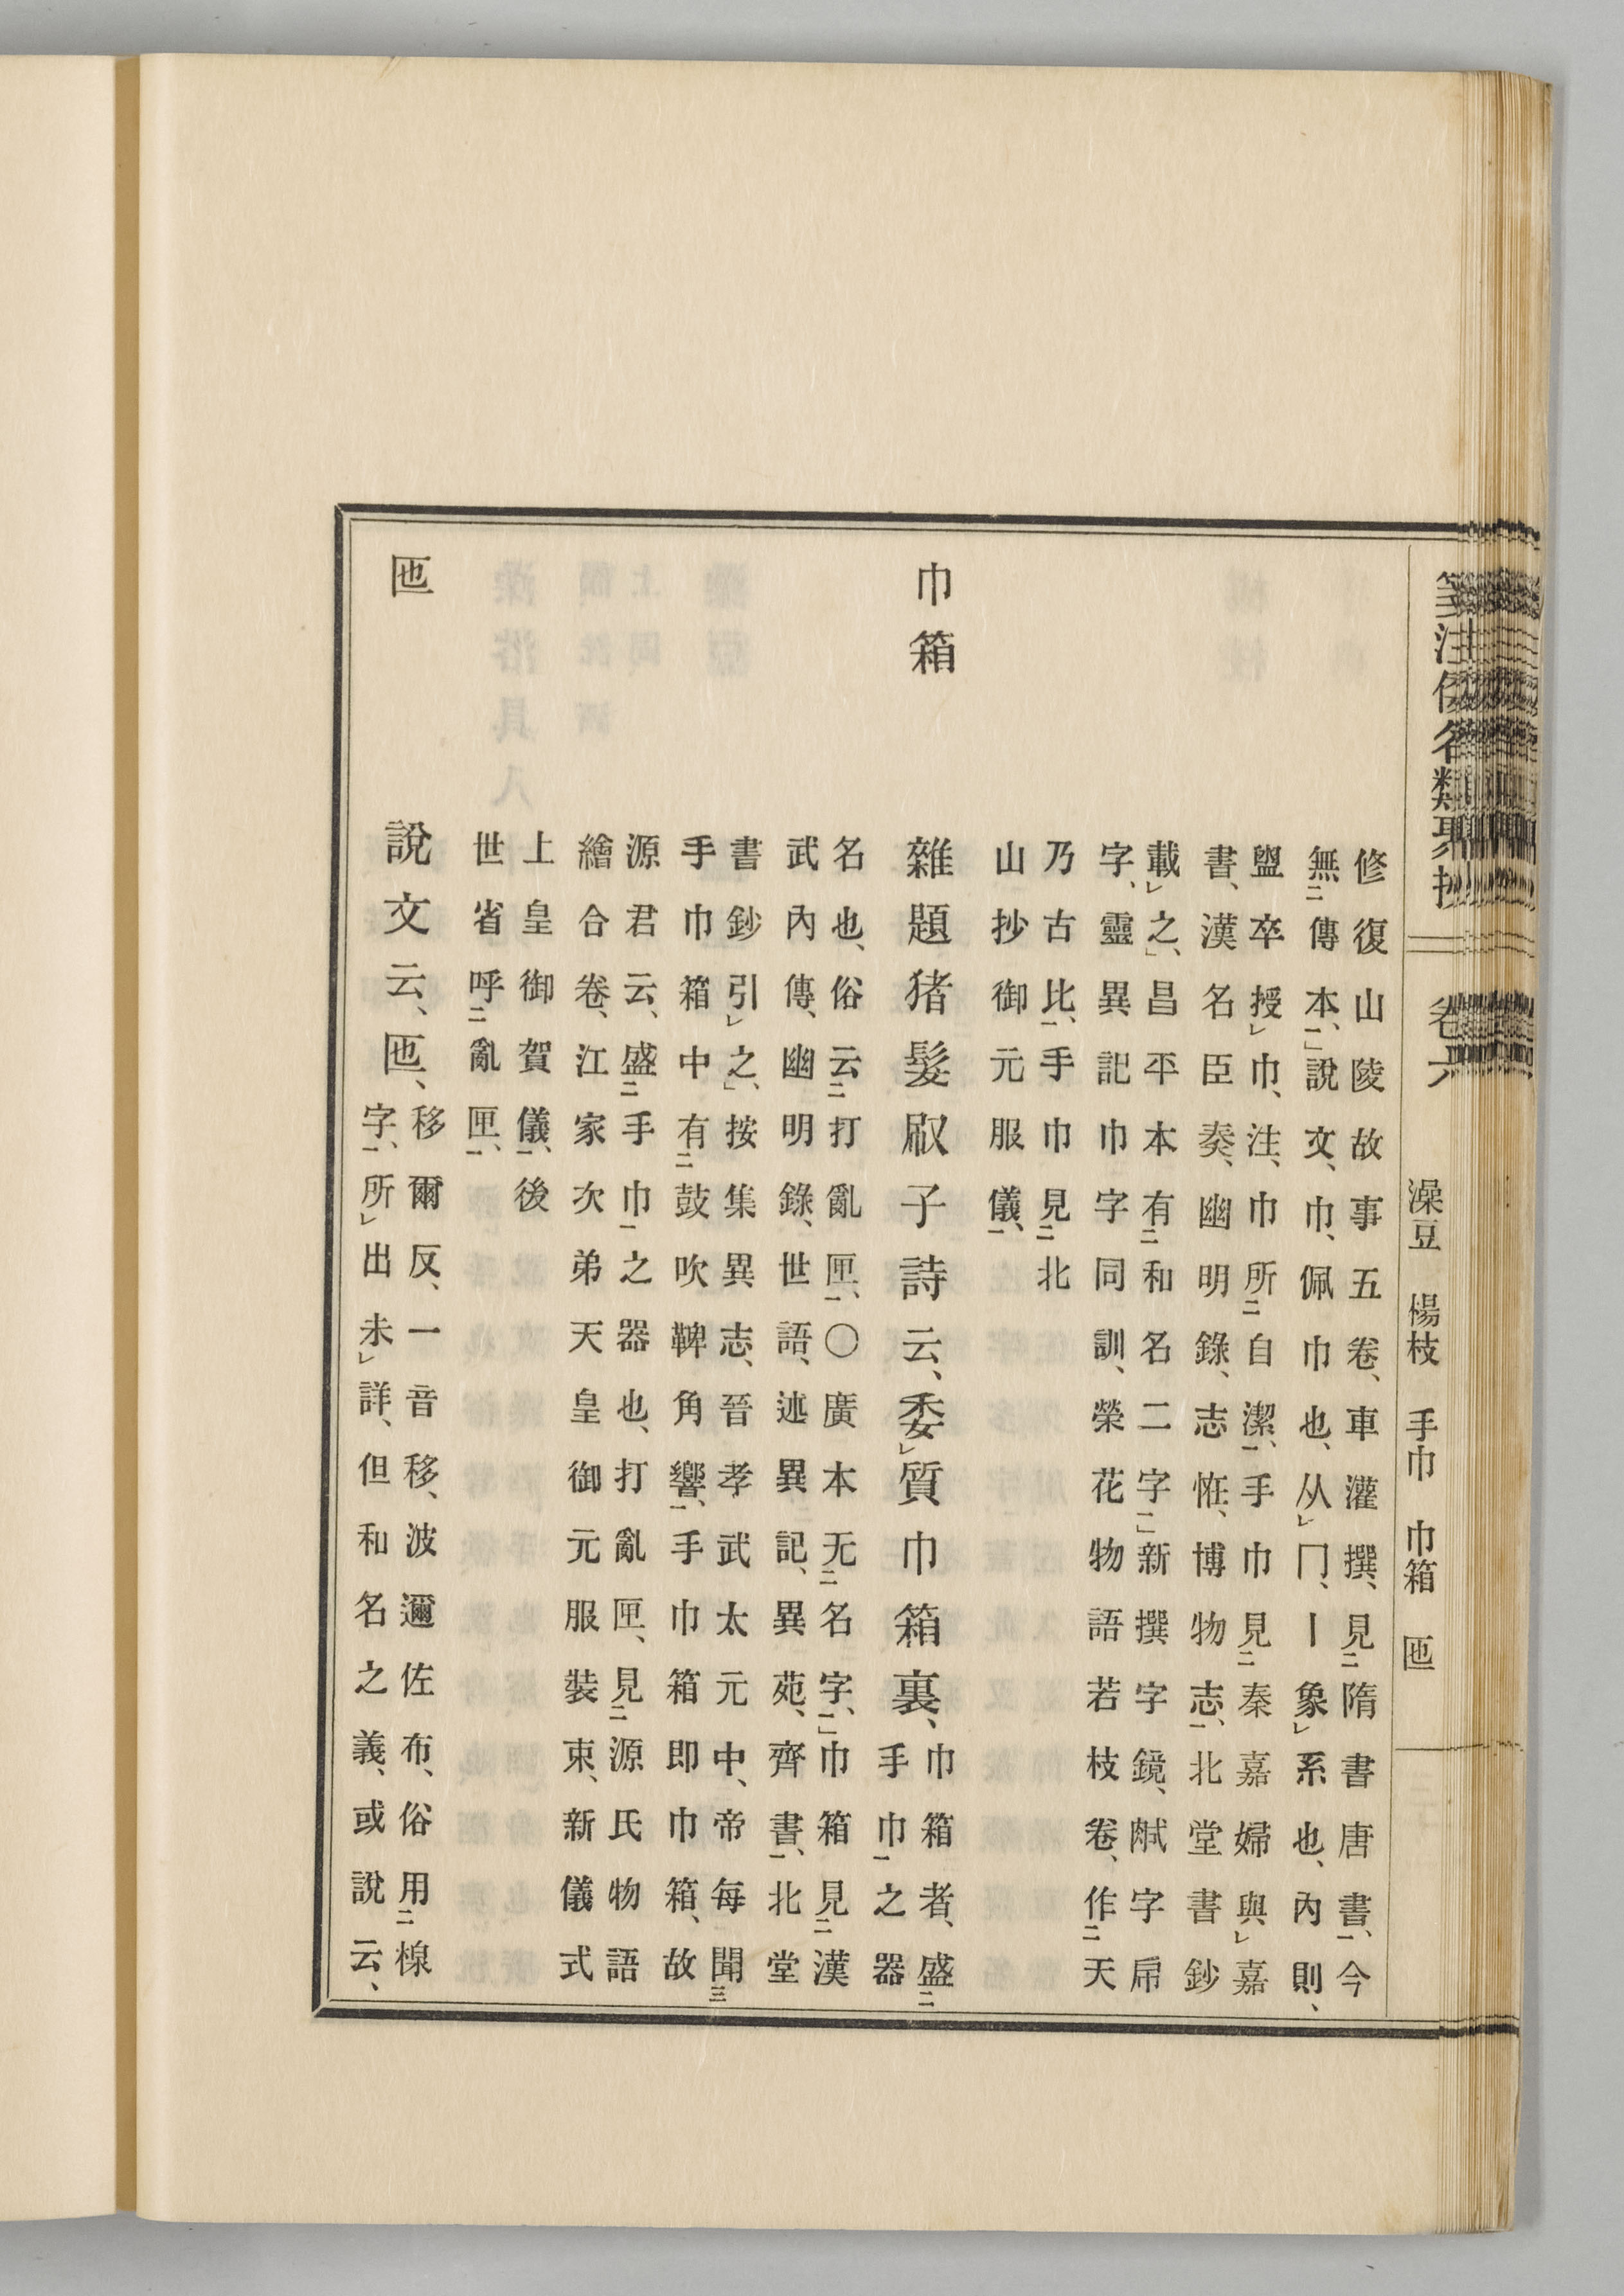 箋注倭名類聚抄 卷六 澡豆 楊枝 手巾 巾箱 匜
修復山陵故事五卷、車灌撰、見隋書唐書、今
無傳本、說文、巾、佩巾也、从冂、丨象系也、內則、
盥卒授巾、注、巾所自潔、手巾見秦嘉婦與嘉
書、漢名臣奏、幽明錄、志恠、博物志、北堂書鈔
載之、昌平本有和名二字、新撰字鏡、㡜字帍
字、靈異記巾字同訓、榮花物語若枝卷、作天
乃古比、手巾見北
山抄御元服儀、
巾箱
雜題猪髮㕞子詩云、委質巾箱裏、巾箱者、盛
手巾之器
名也、俗云打亂匣、〇廣本无名字、巾箱見漢
武內傳、幽明錄、世語、述異記、異苑、齊書、北堂
書鈔引之、按集異志、晉孝武太元中、帝每聞
手巾箱中有鼓吹鞞角響、手巾箱即巾箱、故
源君云、盛手巾之器也、打亂匣、見源氏物語
繪合卷、江家次弟天皇御元服裝束、新儀式
上皇御賀儀、後
世省呼亂匣、
匜
說文云、匜、移爾反、一音移、波邇佐布、俗用楾
字、所出未詳、但和名之義、或說云、